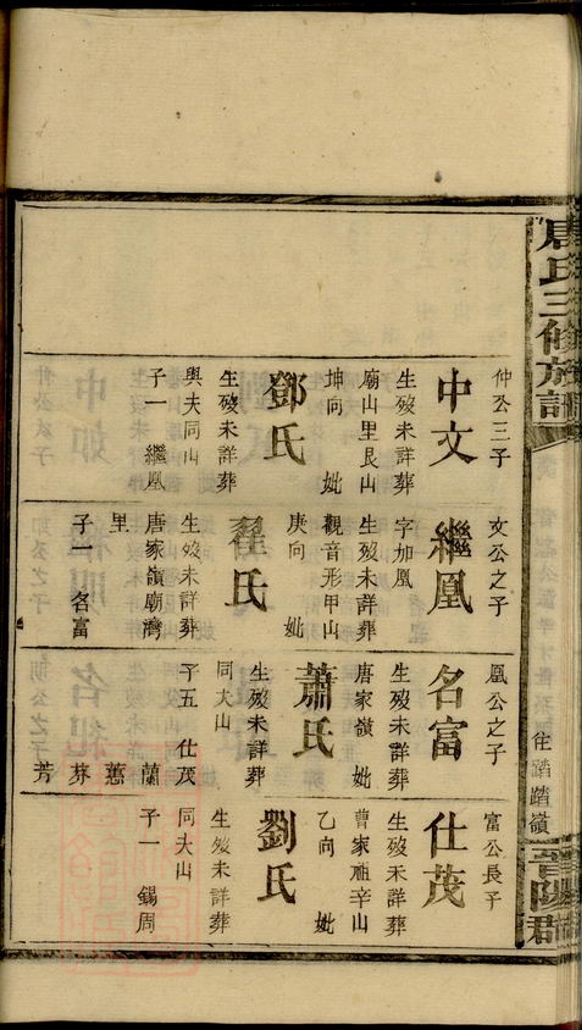 唐氏三修族譜
往踏踏嶺
晉陽郡
仲公三子
中文
生歿未詳葬
廟山里艮山
坤向 妣
鄧氏
生歿未詳葬
與夫同山
子一 繼凰
文公之子
繼凰
字加凰
生歿未詳葬
觀音形甲山
庚向 妣
翟氏
生歿未詳葬
唐家嶺廟灣
里
子一 名富
凰公之子
名富
生歿未詳葬
唐家嶺 妣
蕭氏
生歿未詳葬
同夫山
子五 仕茂
蘭
蕙
芬
芳
富公長子
仕茂
生歿未詳葬
曹家祖辛山
乙向 妣
劉氏
生歿未詳葬
同夫山
子一 錫周